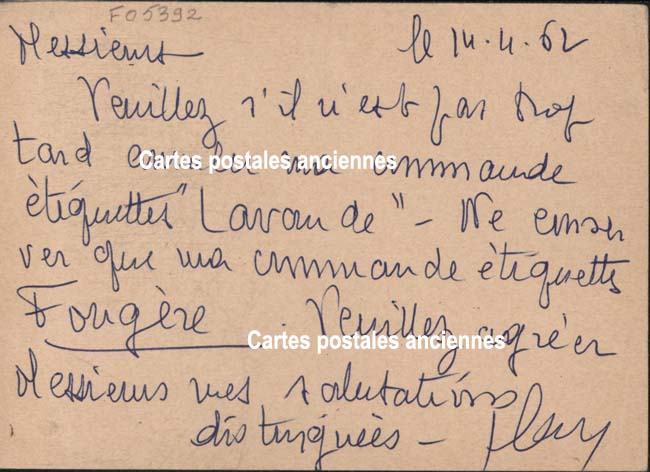 F05392
Messieurs le 14.4.62
Veuillez s'il n'est pas trop
tard annuler ma commande
étiquettes "Lavande" - Ne conser
ver que ma commande étiquettes
Fougère. Veuillez agréer
Messieurs mes salutations
distinguées -
Cartes postales anciennes
Cartes postales anciennes